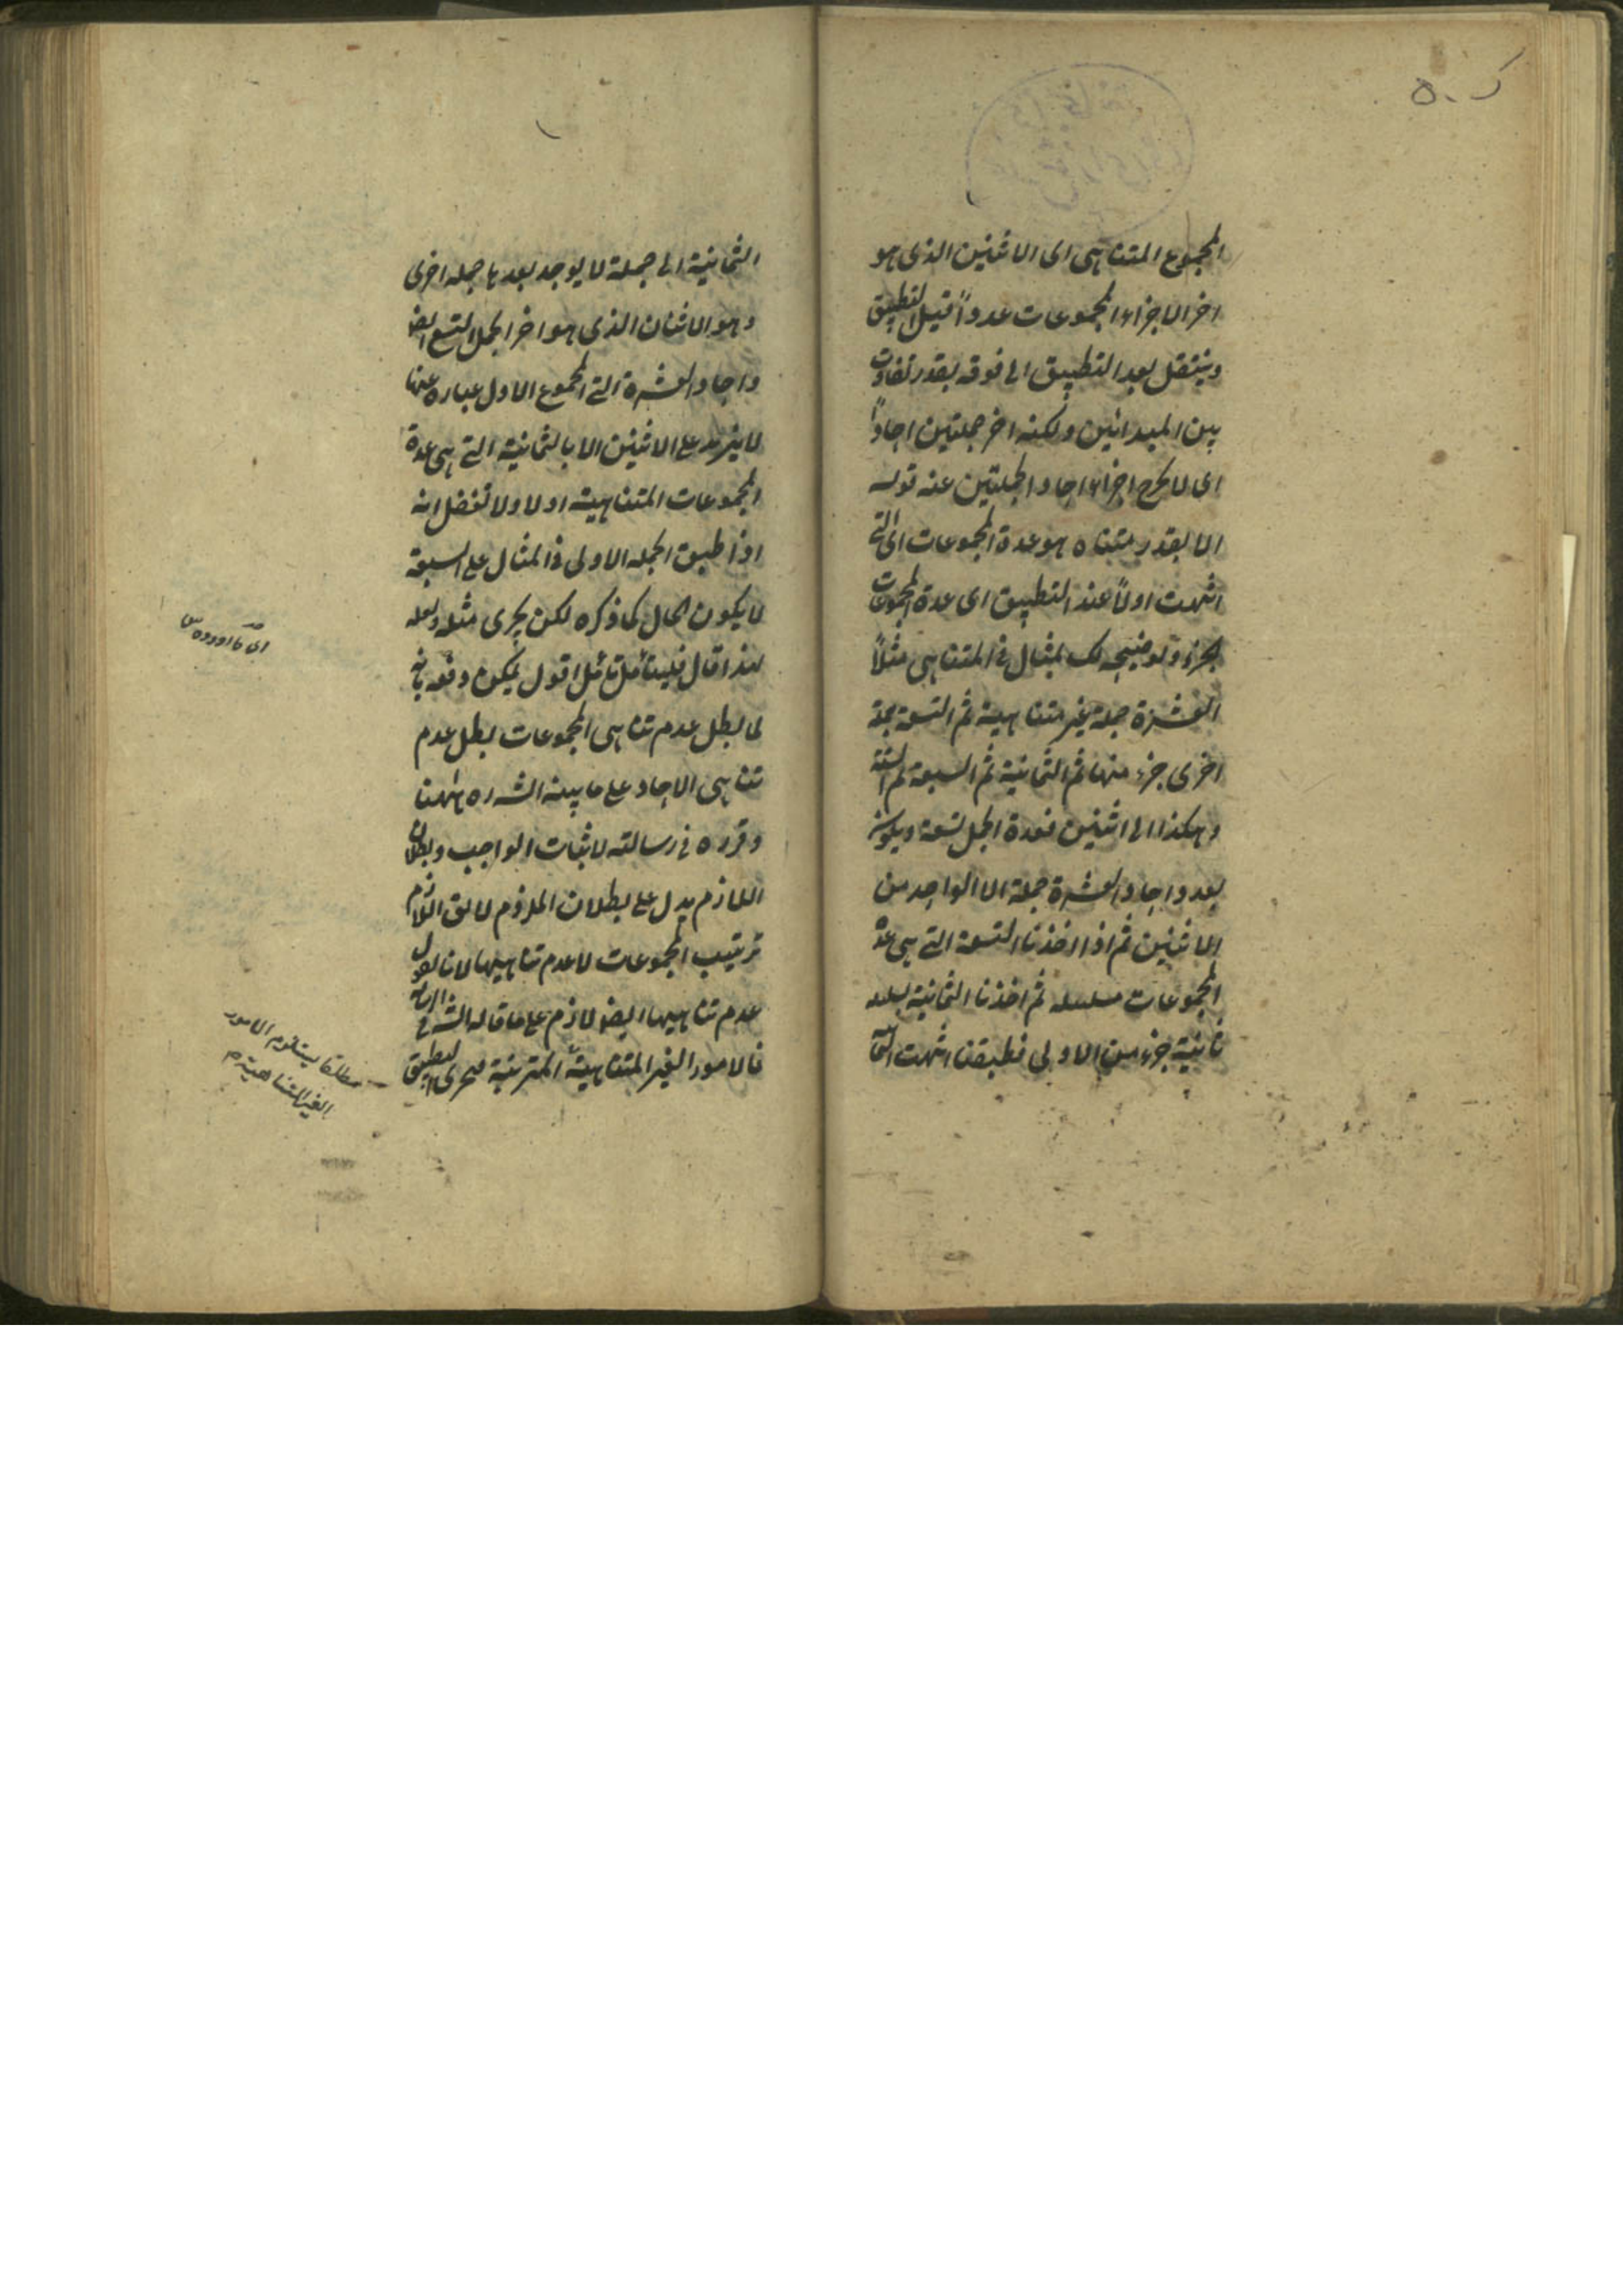 المجموع المتناهى اى الاثنين الذى هو
اخر الاجزاء المجموعات عدداً قبل التطبيق
وينتقل بعد التطبيق الى فوقه بقدر تفاوت
بين المبدائين ولكنه اخر جملتين احاداً
اى لا يخرج اجزاء احاد الجملتين عنه قوله
الا بقدر متناه هو عدة المجموعات اى التى
انتهت اولاً عند التطبيق اى عدة المجموعات
وتوضيحه لك بمثال فى المتناهى مثلاً
العشرة جملة غير متناهية ثم التسعة جملة
اخرى جزء منها ثم الثمانية ثم السبعة ثم الستة
وهكذا الى اثنين فعدة الجمل تسعة ويكون
بعدد احاد العشرة جملة الا الواحد من
الاثنين ثم اذا اخذنا التسعة التى هى عدة
المجموعات سلسله ثم اخذنا الثمانية سلسله
ثانية جزء من الاولى فطبقنا انتهت
الثمانية الى جملة لا يوجد بعدها جمله اخرى
وهو الاثنان الذى هو اخر الجمل التسع ايضا
واحاد العشرة التى المجموع الاول عباره عنها
لا يزيد على الاثنين الا بالثمانية التى هى عدة
المجموعات المتناهية اولا ولا تغفل انه
اذا طبق الجمله الاولى فى المثال على السبعة
لا يكون الحال كما ذكره لكن يجرى مثله ولعله
لهذا قال فليتأمل تأمل اقول يمكن دفعه بانه
لما بطل عدم تناهى المجموعات بطل عدم
تناهى الاحاد على ما بينه الشه ره ههنا
وقرره فى رسالته لاثبات الواجب وبطلان
اللازم يدل على بطلان الملزوم لا يق اللازم
ترتيب المجموعات لا عدم تناهيها لانا نقول
عدم تناهيها ايضا لازم على ما قاله الشه فى
فالامور الغير المتناهية المترتبة التطبيق
مطلقا يستلزم الامور
الغير المتناهية م